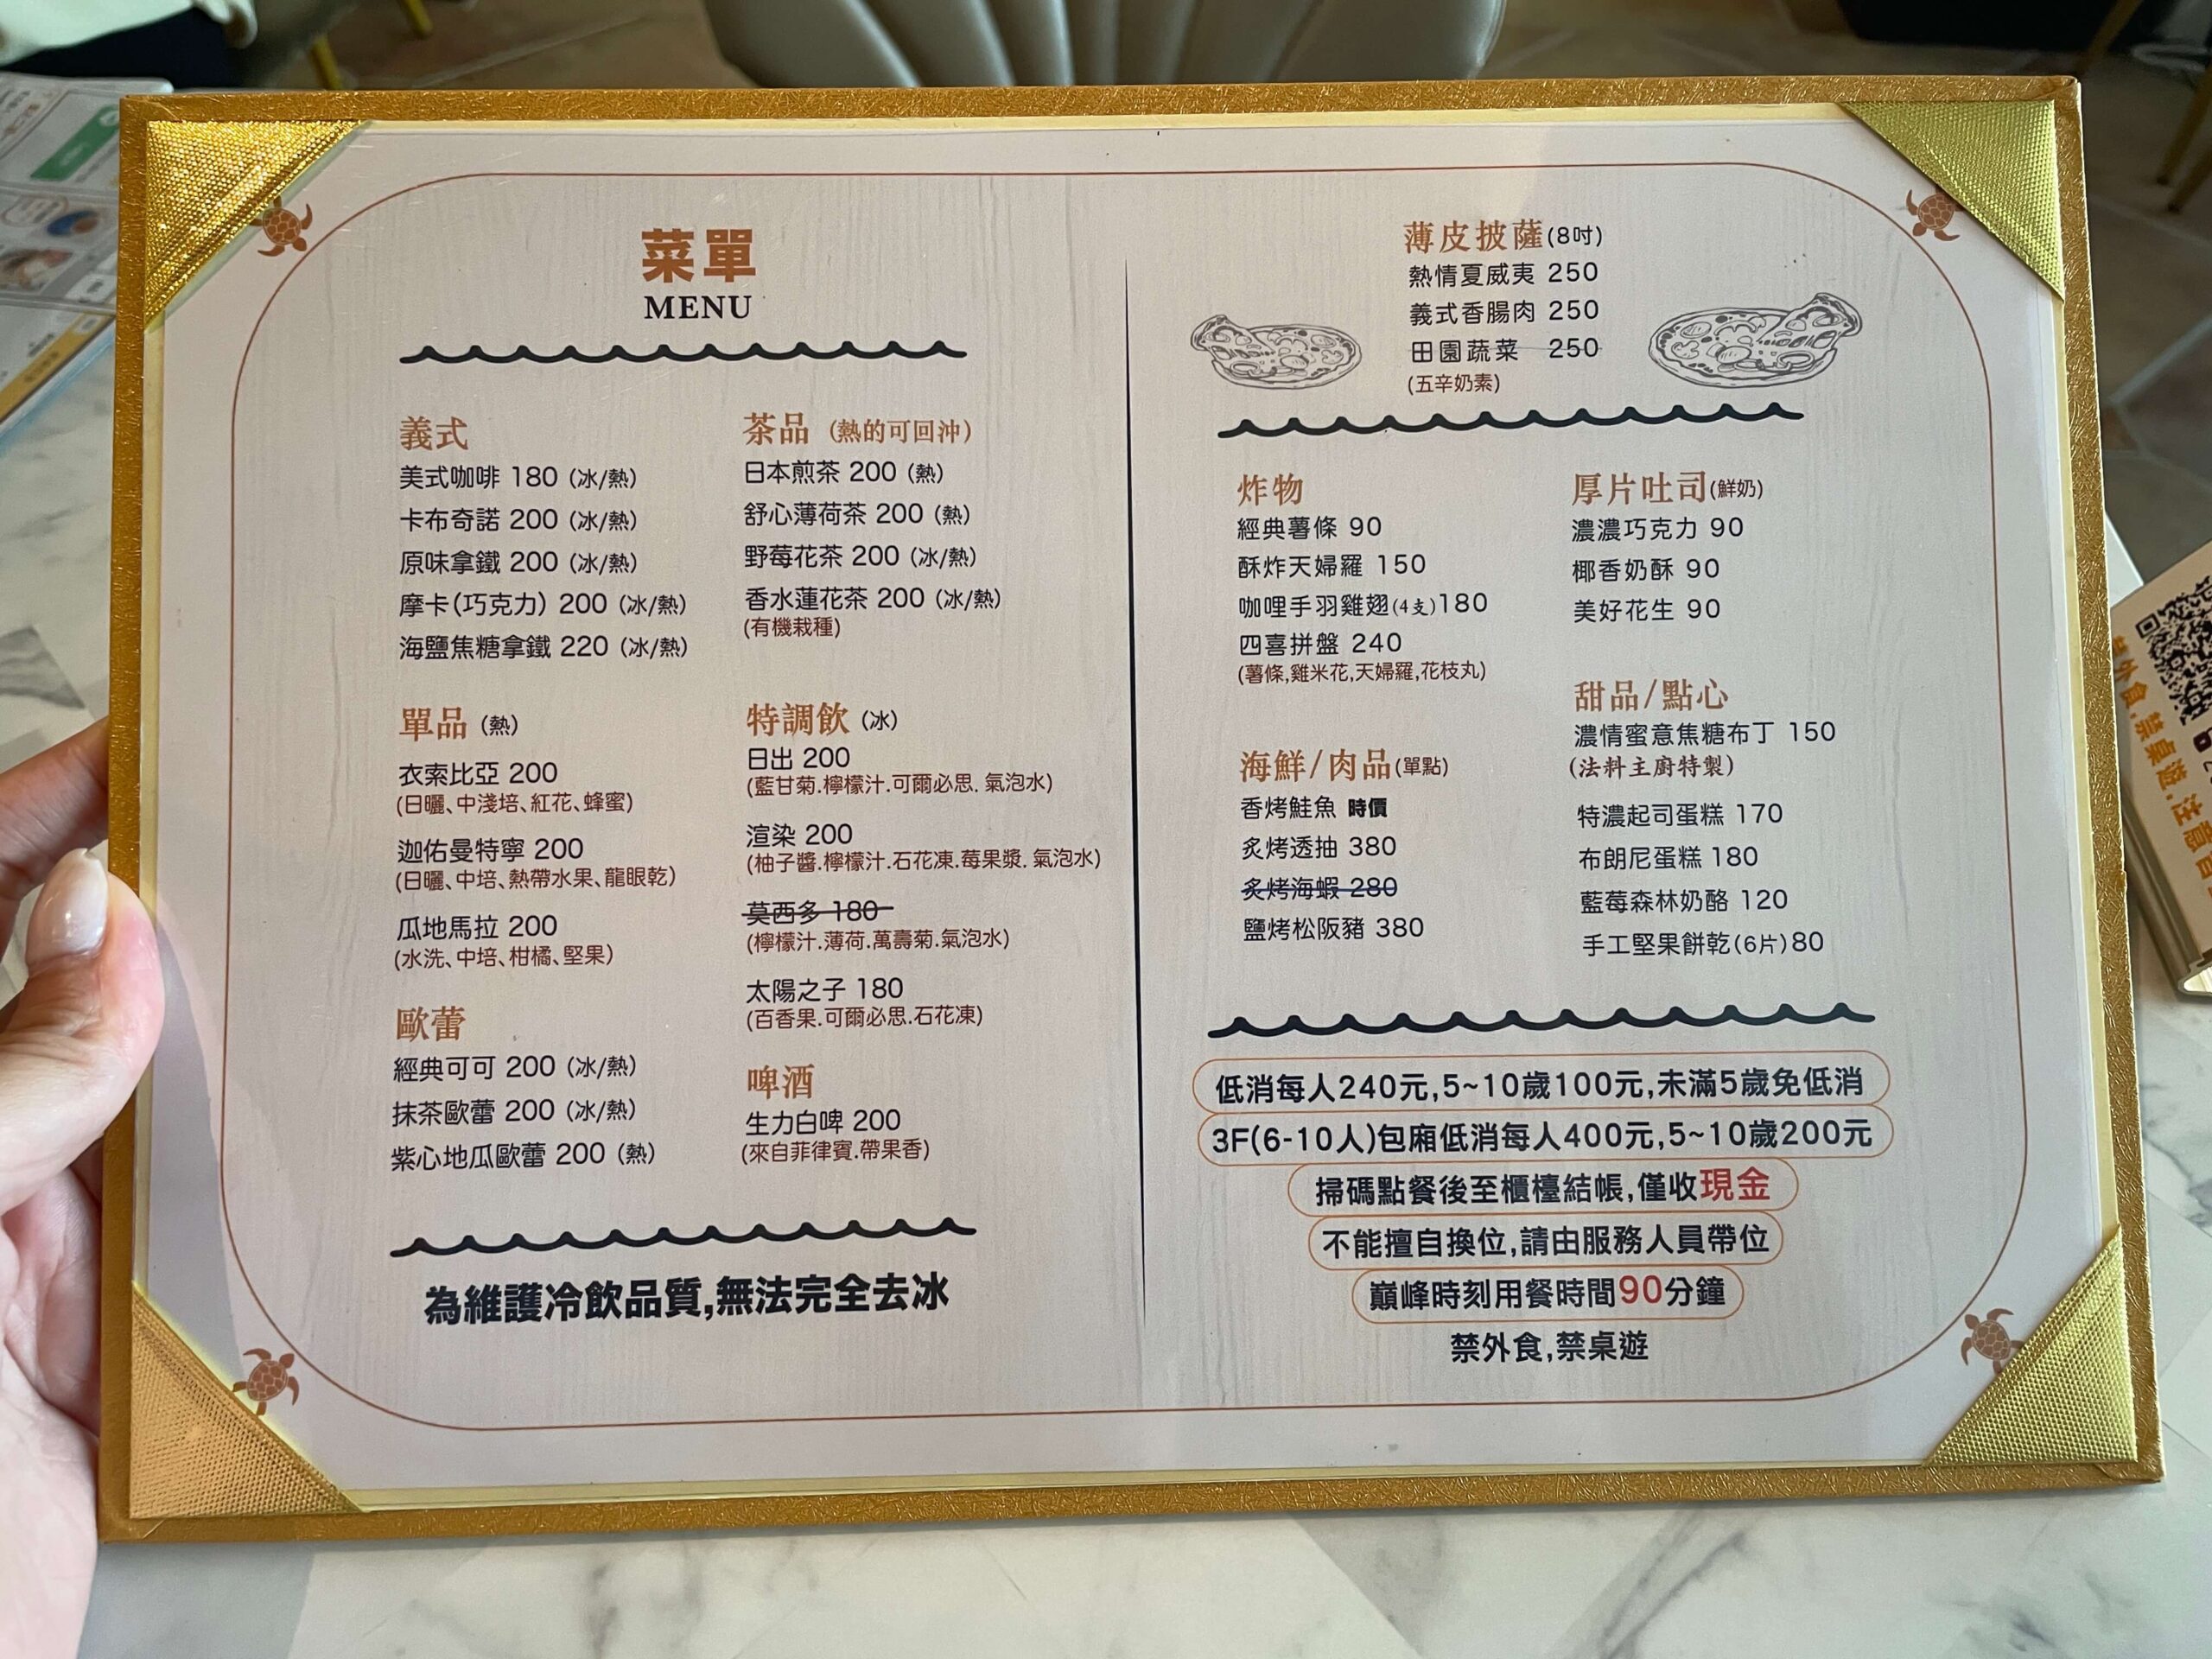 菜單
MENU
義式
美式咖啡 180 (冰/熱)
卡布奇諾 200 (冰/熱)
原味拿鐵 200 (冰/熱)
摩卡(巧克力) 200 (冰/熱)
海鹽焦糖拿鐵 220 (冰/熱)
單品 (熱)
衣索比亞 200
(日曬、中淺培、紅花、蜂蜜)
迦佑曼特寧 200
(日曬、中培、熱帶水果、龍眼乾)
瓜地馬拉 200
(水洗、中培、柑橘、堅果)
歐蕾
經典可可 200 (冰/熱)
抹茶歐蕾 200 (冰/熱)
紫心地瓜歐蕾 200 (熱)
茶品 (熱的可回沖)
日本煎茶 200 (熱)
舒心薄荷茶 200 (熱)
野莓花茶 200 (冰/熱)
香水蓮花茶 200 (冰/熱)
(有機栽種)
特調飲 (冰)
日出 200
(藍甘菊.檸檬汁.可爾必思. 氣泡水)
渲染 200
(柚子醬.檸檬汁.石花凍.莓果漿. 氣泡水)
莫西多 180
(檸檬汁.薄荷.萬壽菊.氣泡水)
太陽之子 180
(百香果.可爾必思.石花凍)
啤酒
生力白啤 200
(來自菲律賓.帶果香)
為維護冷飲品質,無法完全去冰
薄皮披薩(8吋)
熱情夏威夷 250
義式香腸肉 250
田園蔬菜 250
(五辛奶素)
炸物
經典薯條 90
酥炸天婦羅 150
咖哩手羽雞翅(4支)180
四喜拼盤 240
(薯條,雞米花,天婦羅,花枝丸)
海鮮/肉品(單點)
香烤鮭魚 時價
炙烤透抽 380
炙烤海蝦 280
鹽烤松阪豬 380
厚片吐司(鮮奶)
濃濃巧克力 90
椰香奶酥 90
美好花生 90
甜品/點心
濃情蜜意焦糖布丁 150
(法料主廚特製)
特濃起司蛋糕 170
布朗尼蛋糕 180
藍莓森林奶酪 120
手工堅果餅乾(6片)80
低消每人240元,5~10歲100元,未滿5歲免低消
3F(6-10人)包廂低消每人400元,5~10歲200元
掃碼點餐後至櫃檯結帳,僅收現金
不能擅自換位,請由服務人員帶位
巔峰時刻用餐時間90分鐘
禁外食,禁桌遊